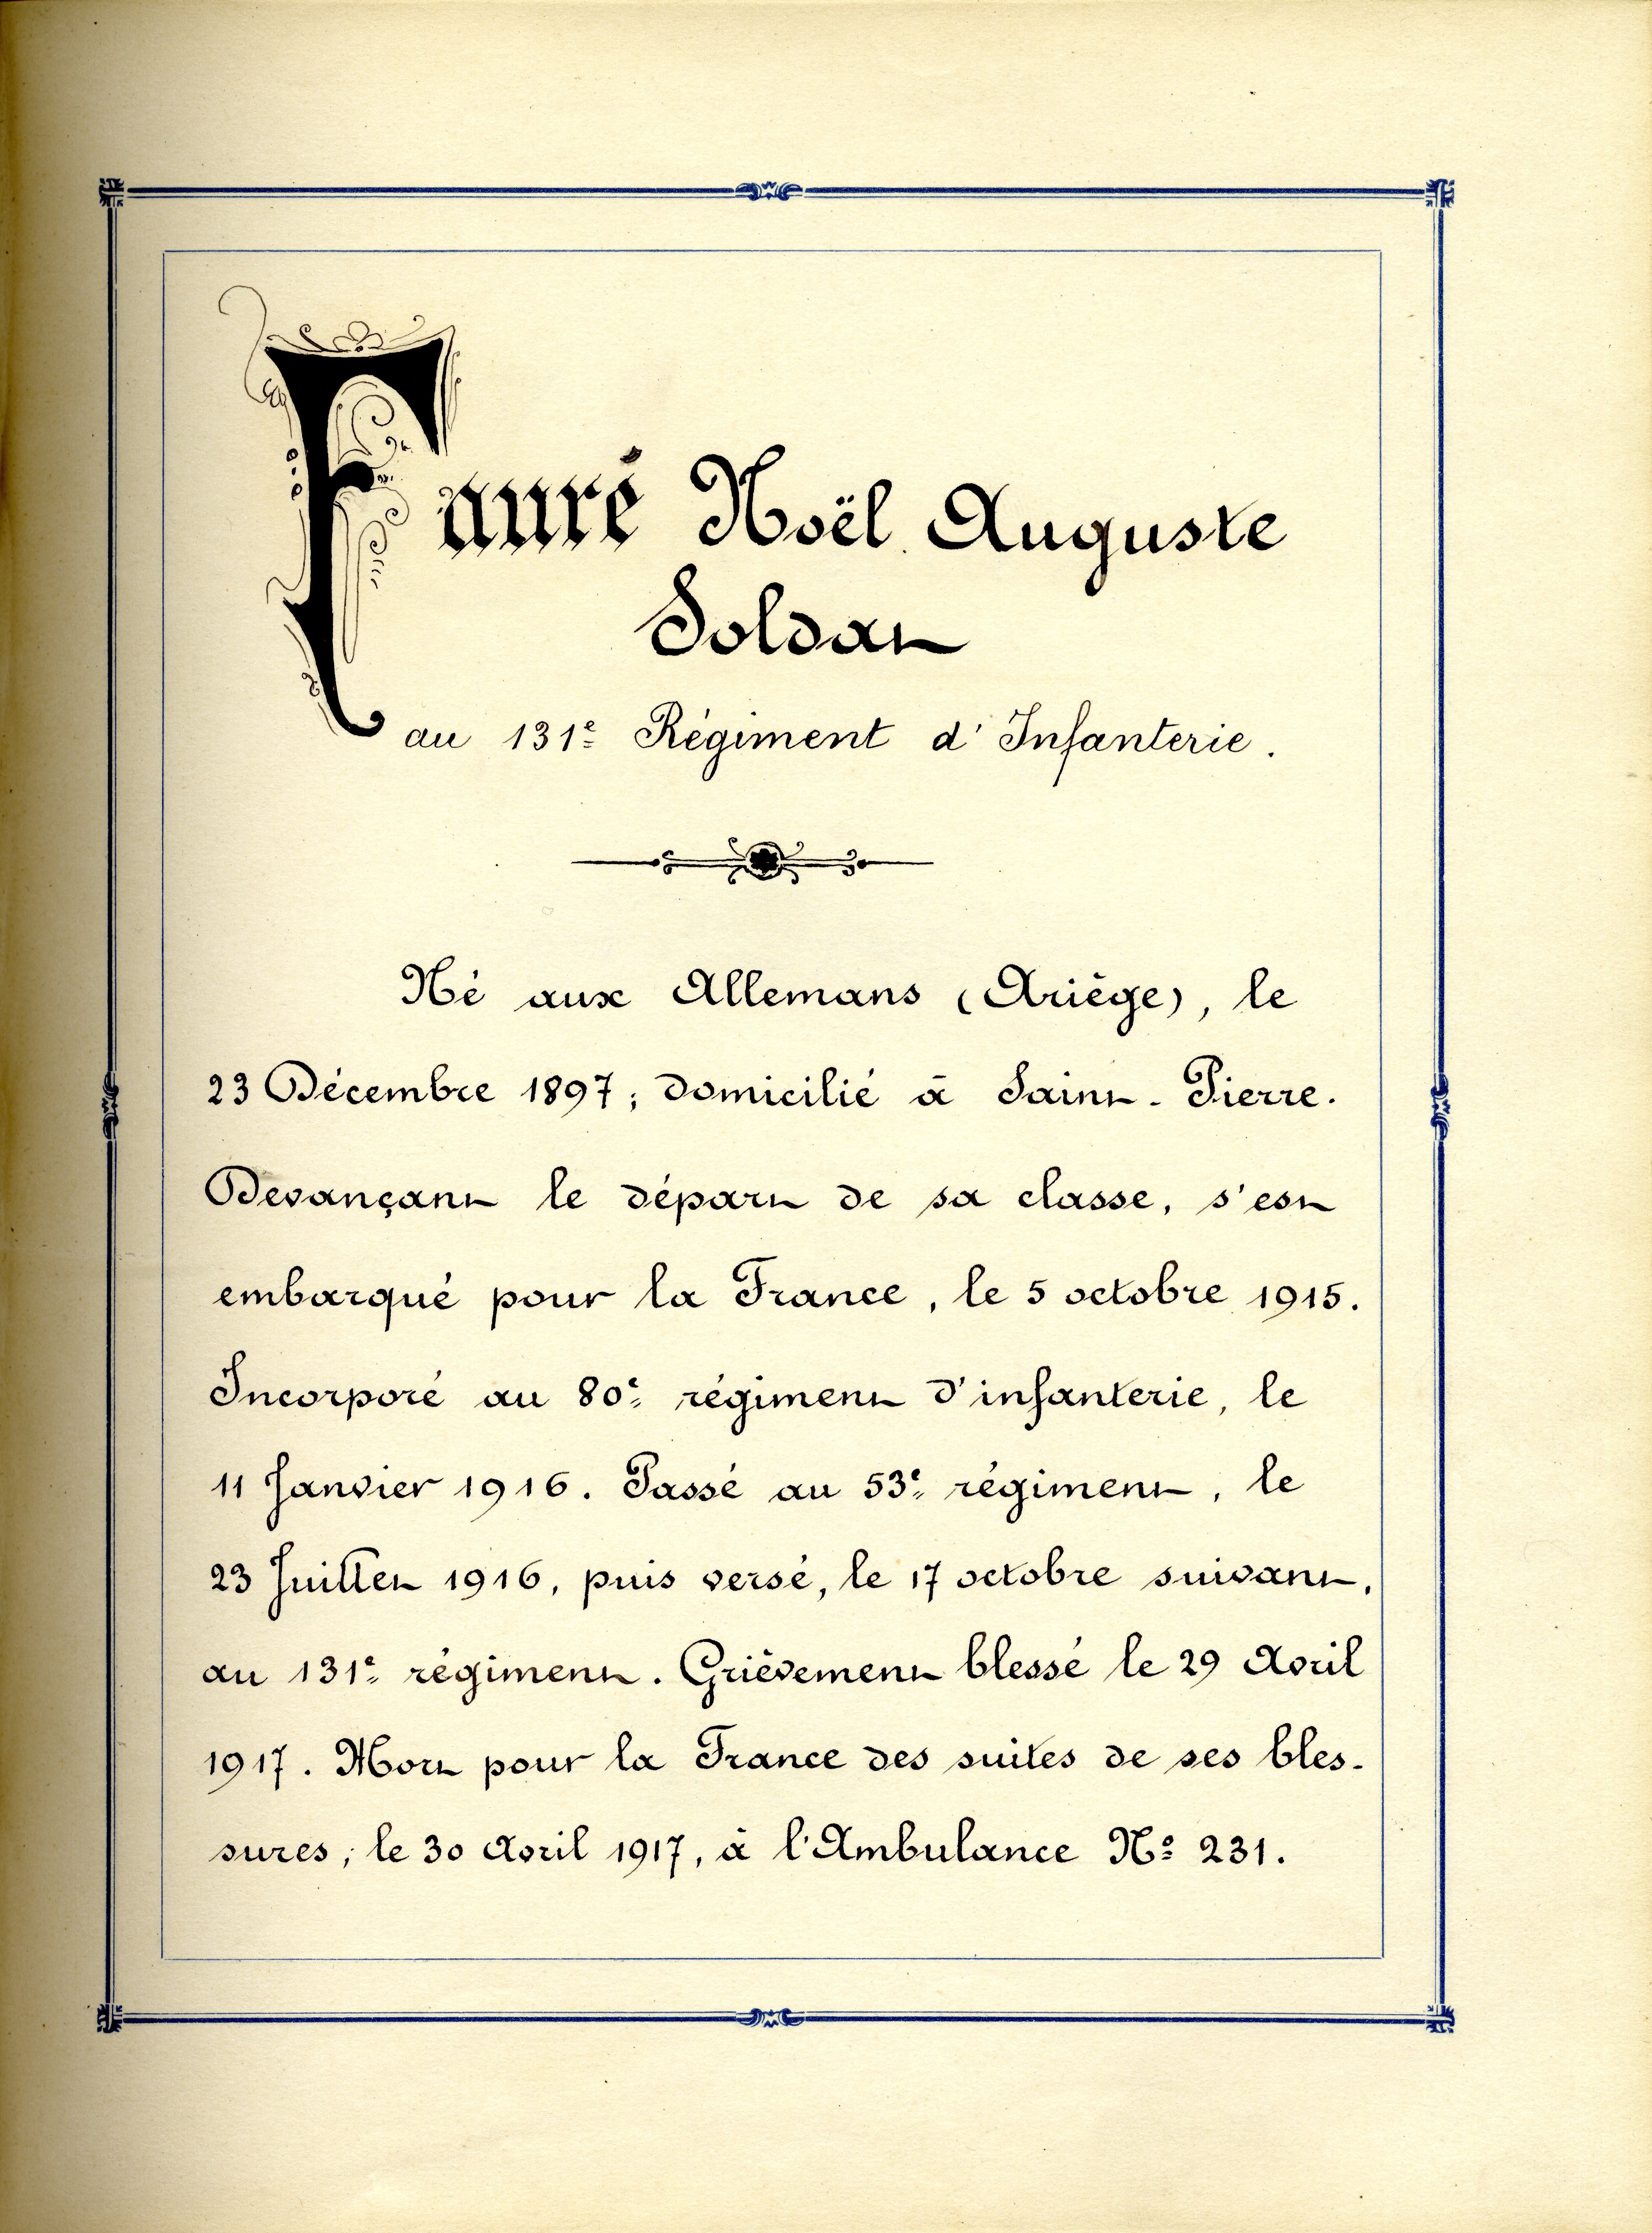 Fauré Noël Auguste
Soldat
au 131e Régiment d'Infanterie.
Né aux Allemans (Ariège), le
23 Décembre 1897; domicilié à Saint-Pierre.
Devançant le départ de sa classe, s'est
embarqué pour la France, le 5 octobre 1915.
Incorporé au 80e régiment d'infanterie, le
11 Janvier 1916. Passé au 53e régiment, le
23 Juillet 1916, puis versé, le 17 octobre suivant,
au 131e régiment. Grièvement blessé le 29 Avril
1917. Mort pour la France des suites de ses bles-
sures, le 30 Avril 1917, à l'Ambulance No 231.